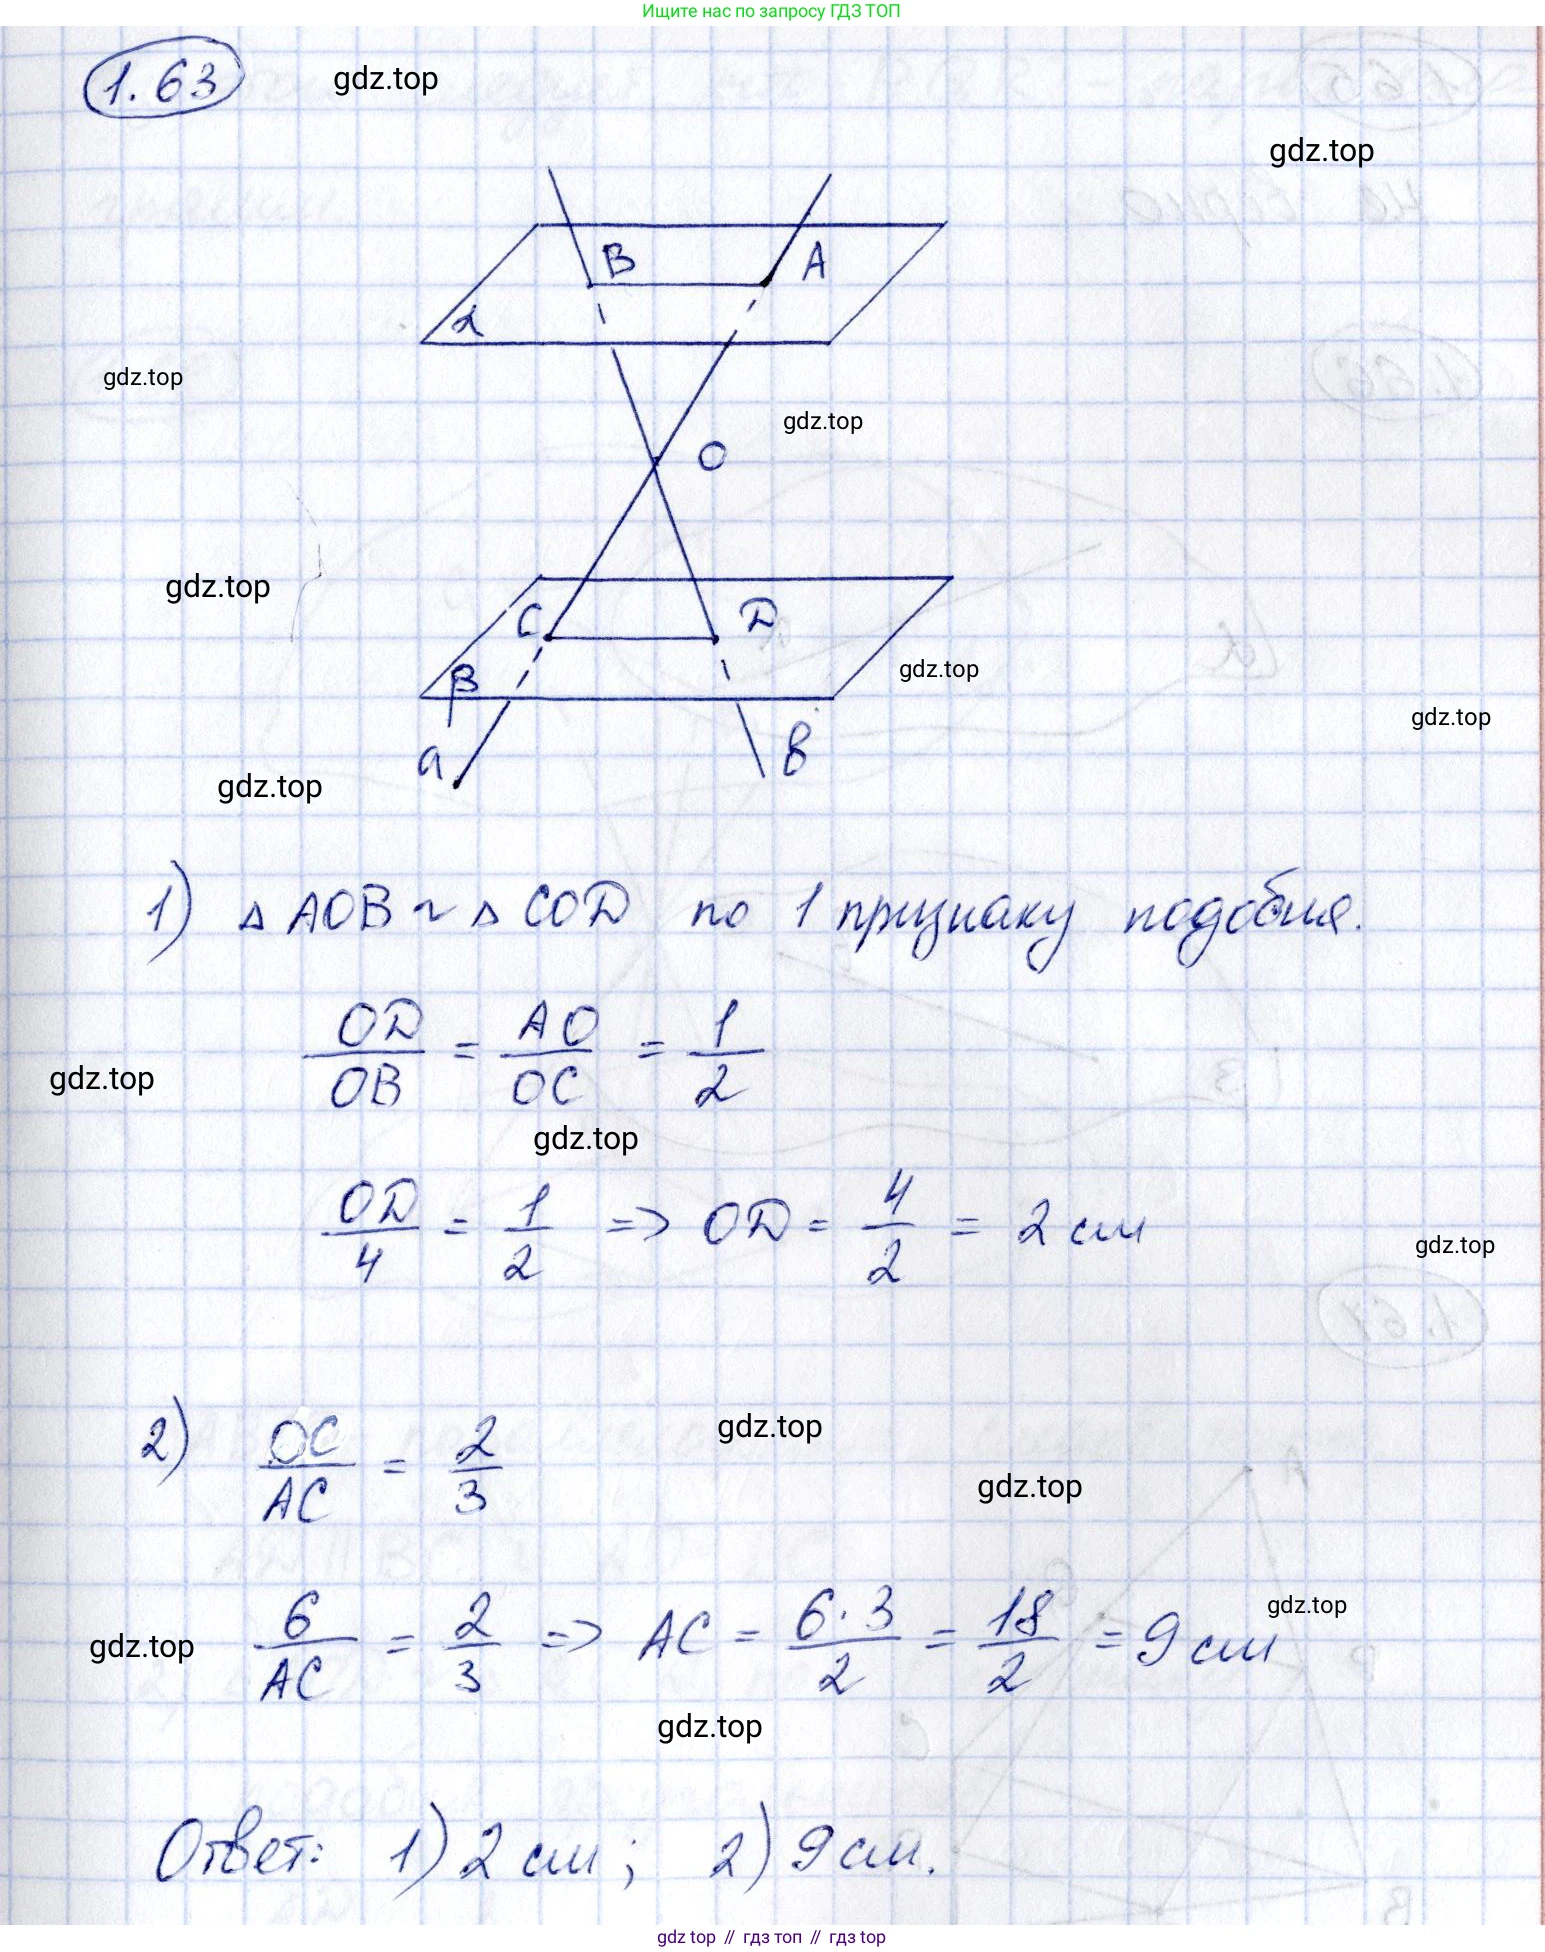 Ищите нас по запросу ГДЗ ТОП
1.63
gdz.top
gdz.top
B A
α
gdz.top
gdz.top
O
gdz.top
C D
β
gdz.top
gdz.top
a в
gdz.top
1) △ AOB ~ △ COD по 1 признаку подобия.
OD/OB = AO/OC = 1/2
gdz.top
gdz.top
OD/4 = 1/2 => OD = 4/2 = 2 см
gdz.top
2) OC/AC = 2/3
gdz.top
gdz.top
6/AC = 2/3 => AC = 6·3/2 = 18/2 = 9 см
gdz.top
gdz.top
gdz.top
Ответ: 1) 2 см; 2) 9 см.
gdz top // гдз топ // гдз top